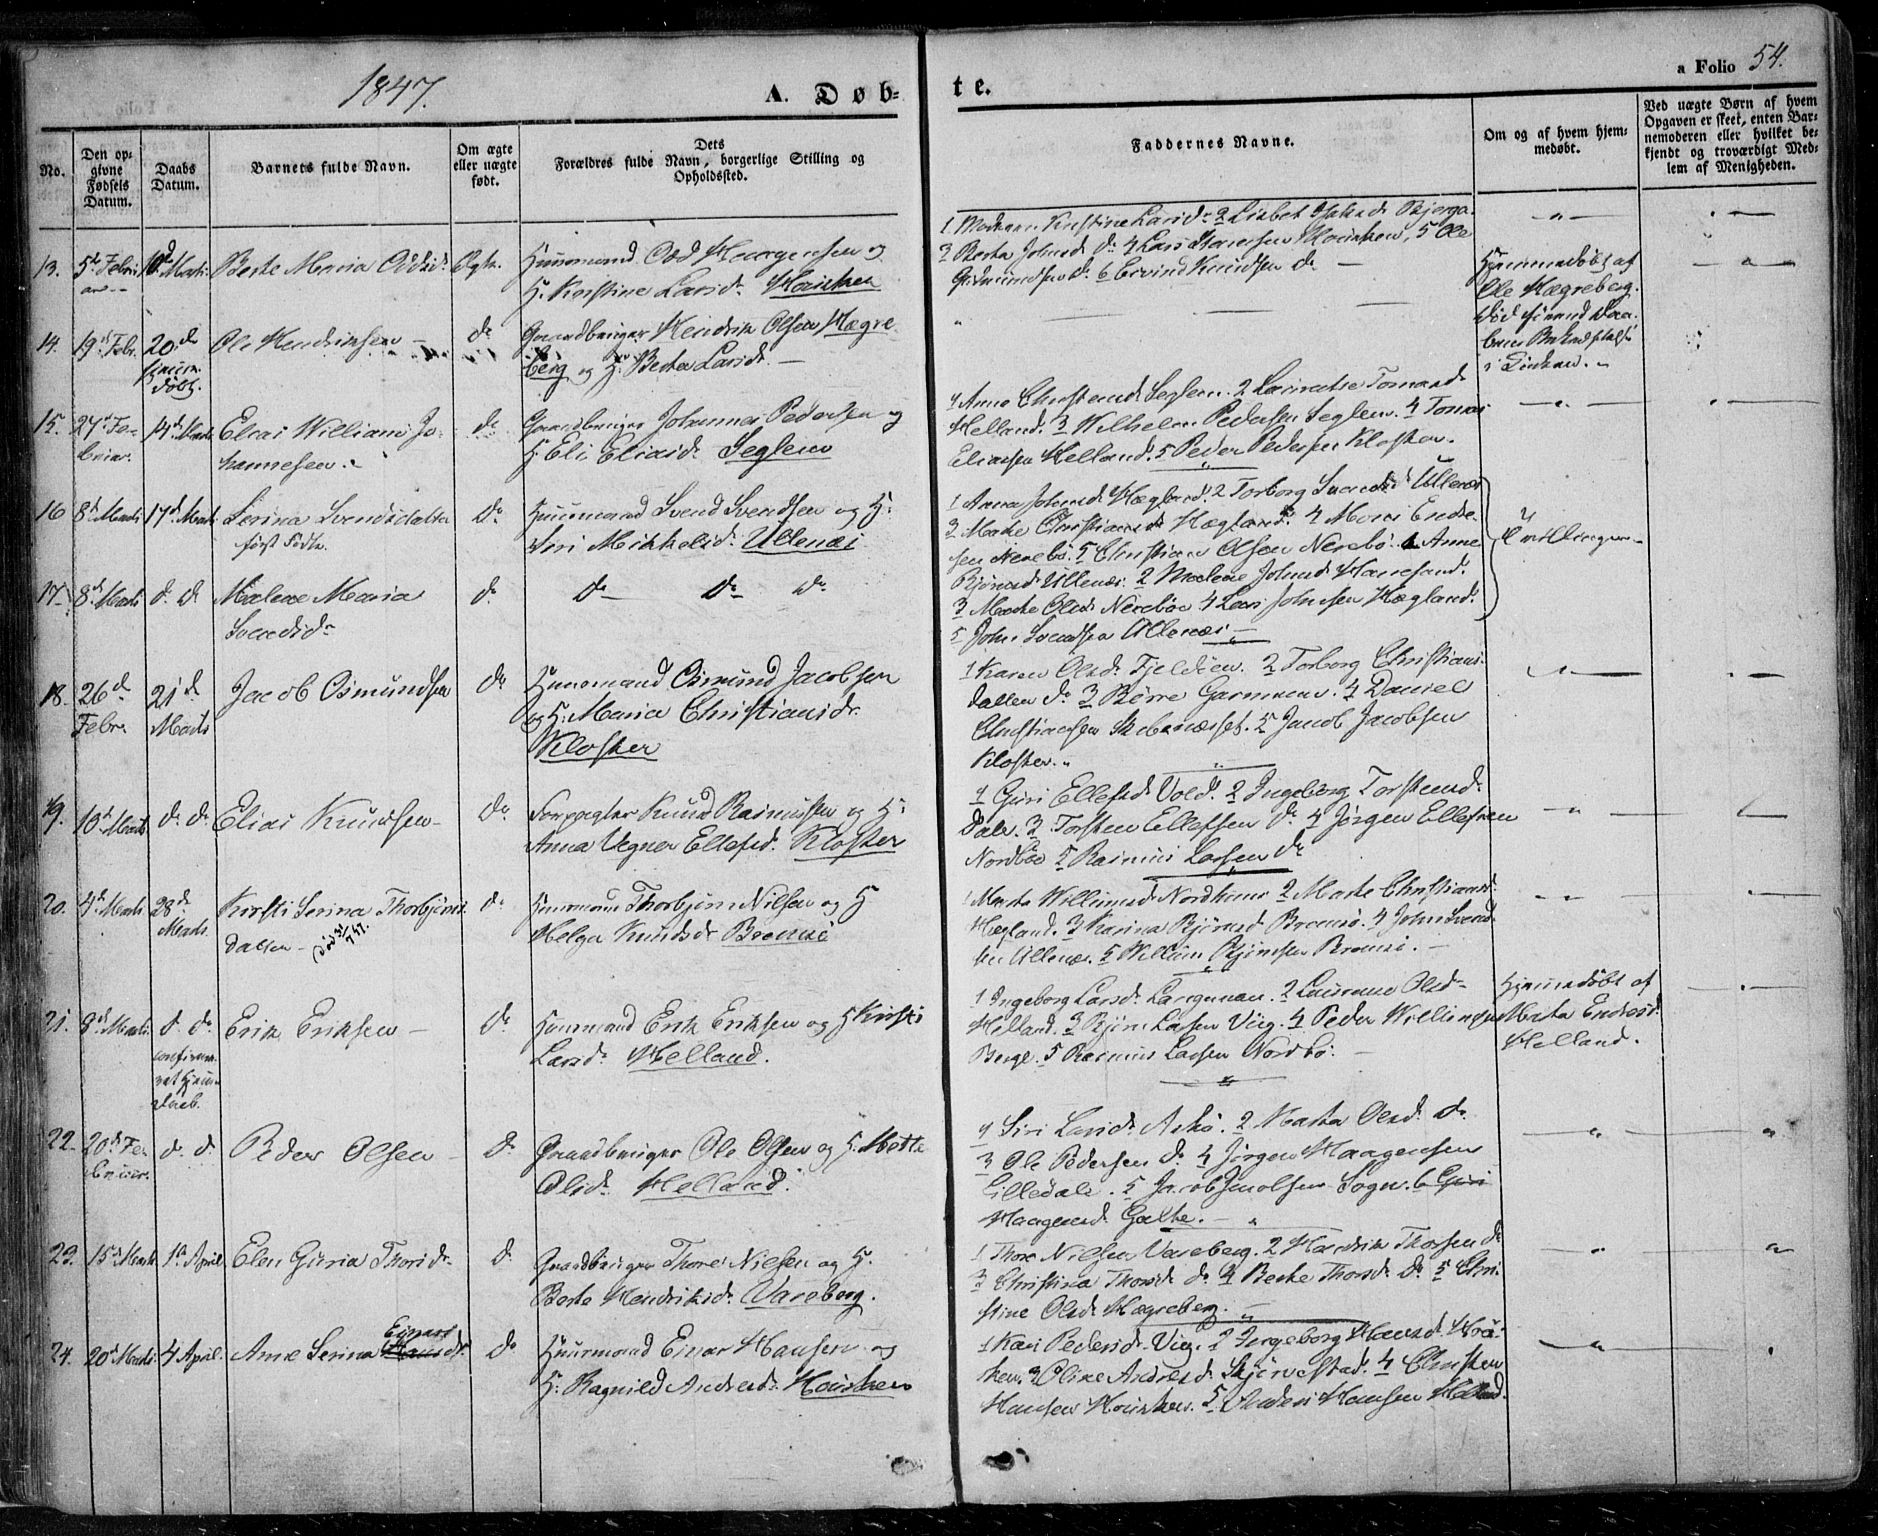 1847.
A. Døb-
te.
a Folio 54.
No.
Den op-
givne
Fødsels
Datum.
Daabs
Datum.
Barnets fulde Navn.
Om ægte
eller uægte
født.
Dets
Forældres fulde Navn, borgerlige Stilling og
Opholdssted.
Faddernes Navne.
Om og af hvem hjem-
medøbt.
Ved uægte Børn af hvem
Opgaven er skeet, enten Bar-
nemoderen eller hvilket be-
kjendt og troværdigt Med-
lem af Menigheden.
13. 5te Febru-
ar
Marts
Berte Maria
Ægte
Huusmand Odd og
H. Kirstine Larsd.
1 Moderen Kirstine Larsd. 2 Lisbet
3 Berta Johnsd. do 4 Lars 5 Ole
Gudmundsen do 6 Eivind Knudsen do
14. 19de Febr.
20de
hjemme-
døbt.
Ole Hendriksen
do
Gaardbruger Hendrik Olsen Hægre-
berg og H. Berta Larsd.
Hjemmedøbt af
Ole Hægreberg.
Død førend Daa-
bens
i Kirken.
15. 27de Fe-
bruar.
14de Marts
Elias William Jo-
hannesen.
do
Gaardbruger Johannes Pedersen og
H. Eli Eliasd. Seglem
1 Anne Christensd. Seglem. 2 Tomasd.
Helland. 3 Wilhelm Pedersen Seglem. 4 Tomas
Eliassen Helland. 5 Peder Pedersen Kloster.
16 8de Marts
17de Marts
Serina Svendsdatter
først Født.
do
Huusmand Svend Svendsen og H.
Siri Mikkelsd. Ullenæs
1 Anna Johnsd. Hægland. 2 Torborg Svendsd. Ullenæs
3 Marte Christiansd. Hægland. 4 Mons Endre-
sen Nerebø. 5 Christian Olsen Nerebø. 1 Anne
Tvillinger
17. 8de Marts
do do
Malene Maria
Svendsd.
do
do do do
Bjørnsd. Ullenæs. 2 Malene Johnsd. Harresand.
3 Marte Olsd. Nerebøe 4 Lars Johnsen Hægland.
5 John Svendsen Ullenæs
18. 26de
Febr.
21de
Marts
Jacob Osmundsen
do
Huusmand Osmund Jacobsen
og H. Maria Christiansdr.
Kloster
1 Karen Olsd. Fjeldøen. 2 Torborg Christians-
datter do 3 Børre Garmann. 4 Daniel
Christiansen 5 Jacob Jacobsen
Kloster.
19. 10de Marts
do do
Elias Knudsen
do
Forpagter Knud Rasmussen og H.
Anna Vegner Ellefsd. Kloster
1 Guri Ellefsd. Vold. 2 Ingeborg Torstensd.
Dale. 3 Torsten Ellefsen do 4 Jørgen Ellefsen
Nordbøe 5 Rasmus Larsen do
20. 4de Marts
28de
Marts.
Kirsti Serina Thorbjørns-
datter
do
Huusmand Thorbjørn Nilsen og H.
Helga Knudsdr Bremsø
1 Marta Willumsd. 2 Marte Christiansd.
Hægland. 3 Karina Bjørnsd. Bremsø. 4 John Svend-
sen Ullenæs. 5 Willum Bjørnsen Bremsø.
21. 8de Marts
do do
confirme-
ret hjemme-
Daab.
Erik Eriksen
do
Huusmand Erik Eriksen og H. Kirsti
Larsd. Helland.
1 Ingeborg Larsd. Langenæs. 2 Laurense Olsd.
Helland. 3 Bjørn Larsen Viig. 4 Peder Willumsen
Berge. 5 Rasmus Larsen Nordbø.
Hjemmedøbt af
Marta Endresd.
Helland.
22. 20de Fe-
bruar.
do do
Peder Olsen
do
Gaardbruger Ole Olsen og H. Mette
Olsd. Helland.
1 Siri Larsd. Askø. 2 Marta Olsd. do
3 Ole Pedersen do 4 Jørgen Haagensen
Lilledale. 5 Jacob Sogn. 6 Guri
Haagensd. Galte.
23. 15de Marts
1ste April
Elen Guria Thorsdr.
do
Gaardbruger Thore Nilsen og H.
Berte Hendriksd. Vareberg.
1 Thore Nilsen Vareberg. 2 Hendrik Thorsen do
3 Christina Thorsd. do 4 Berte Thorsd. do 5 Chri-
stine Olsd. Hægreberg.
24. 20de Marts
4 April
Anne Serina Einars
Hansdr.
do
Huusmand Einar Hansen og
H. Ragnild Andersd.
1 Kari Pedersd. Viig. 2 Ingeborg Hansd.
3 Oline Andresd. Skjørvestad. 4 Christen
Hansen 5 Anders Hansen Helland.